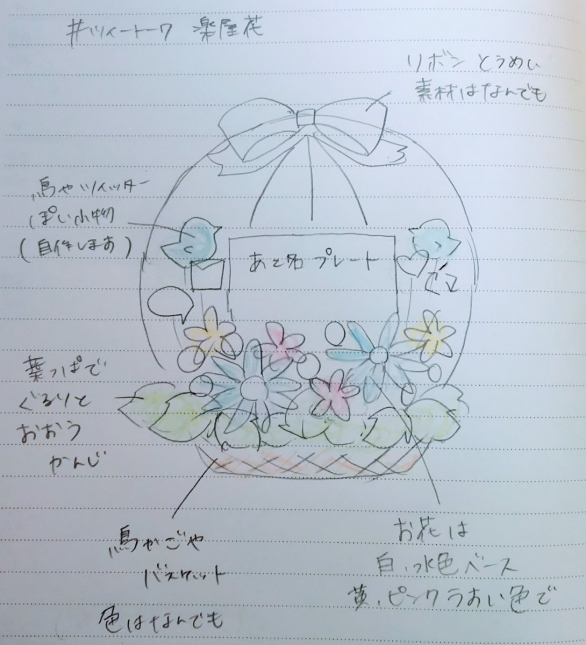 #ツイートーク 楽屋花
リボン とうめい
素材はなんでも
鳥やツイッター
ぽい小物
(自作します)
あて名 プレート
葉っぱで
ぐるりと
おおう
かんじ
鳥かごや
バスケット
色はなんでも
お花は
白、水色ベース
黄、ピンクうすい色で